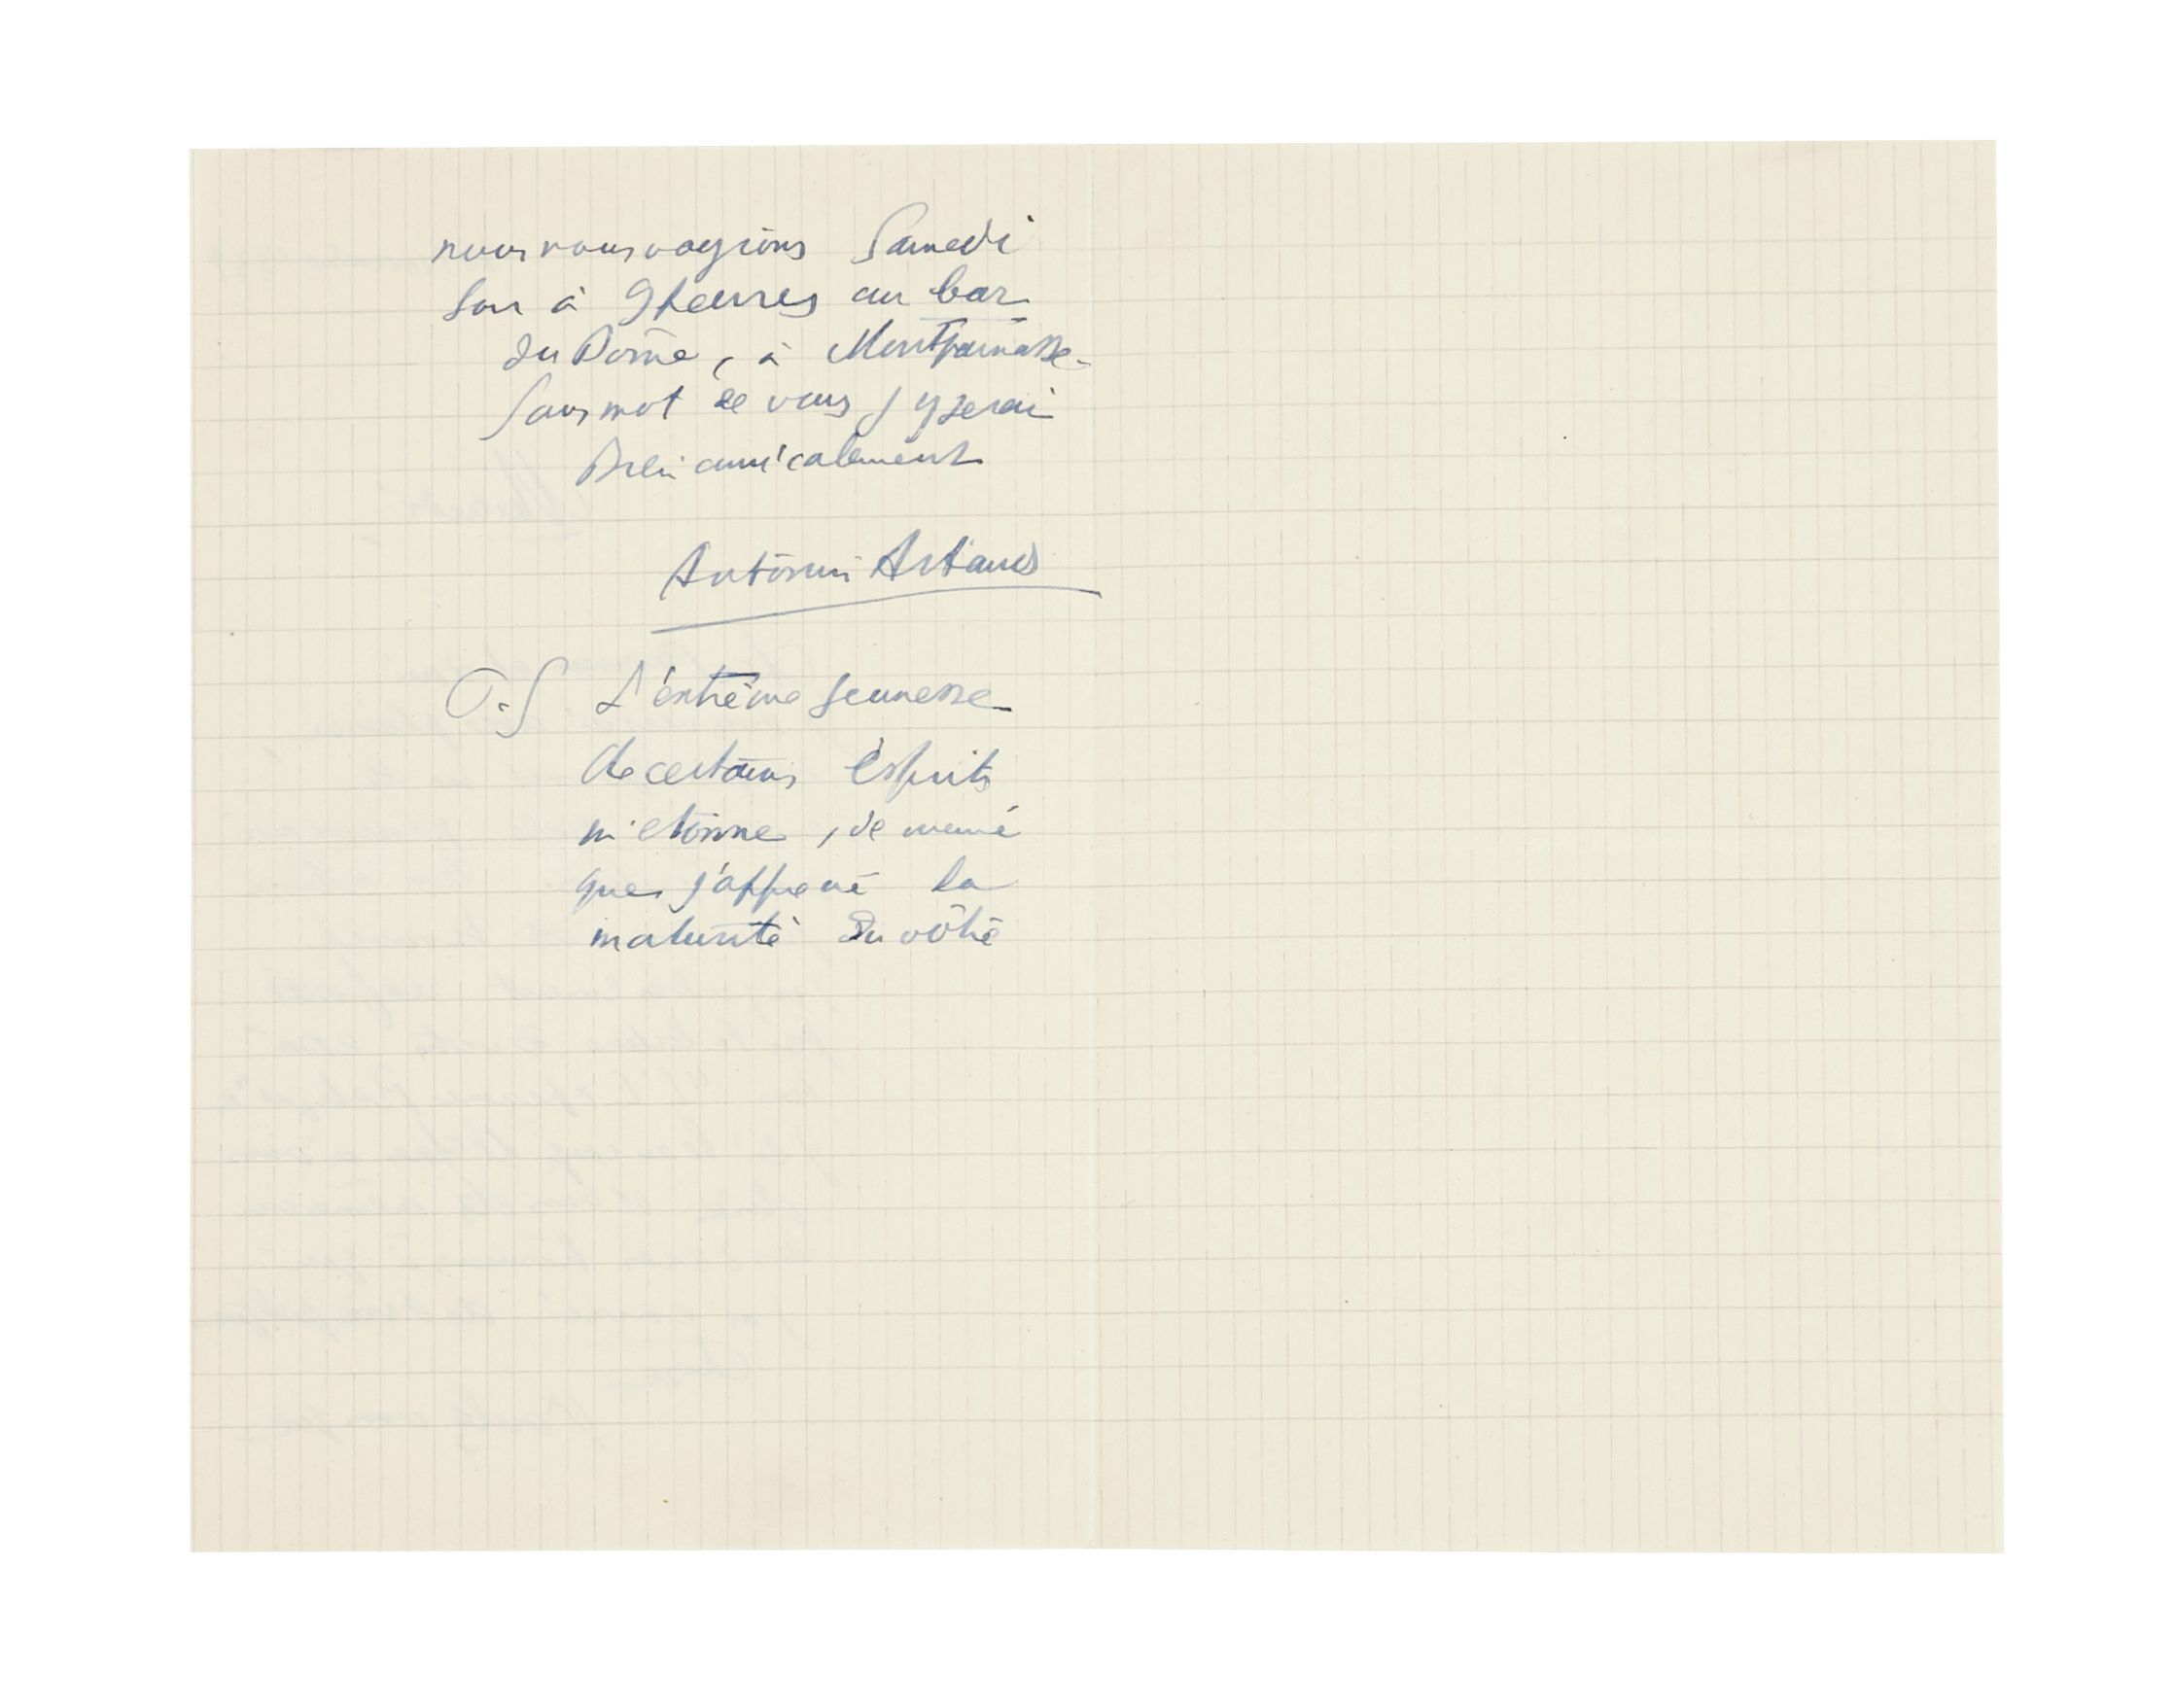 nous nous voyions Samedi
soir à 9 heures au bar
du Dôme, à Montparnasse.
Sans mot de vous j'y serai
Bien amicalement
Antonin Artaud
P.S L'extrême jeunesse
de certains esprits
m'etonne, de même
que
la
maturité du vôtre